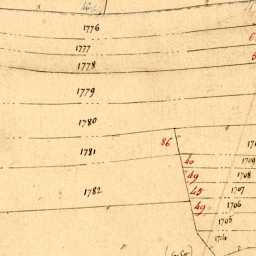 1776
1777
1778
1779
1780
86
1781
40
1709
49
1708
1782
45
1707
49
1706
1705
1704